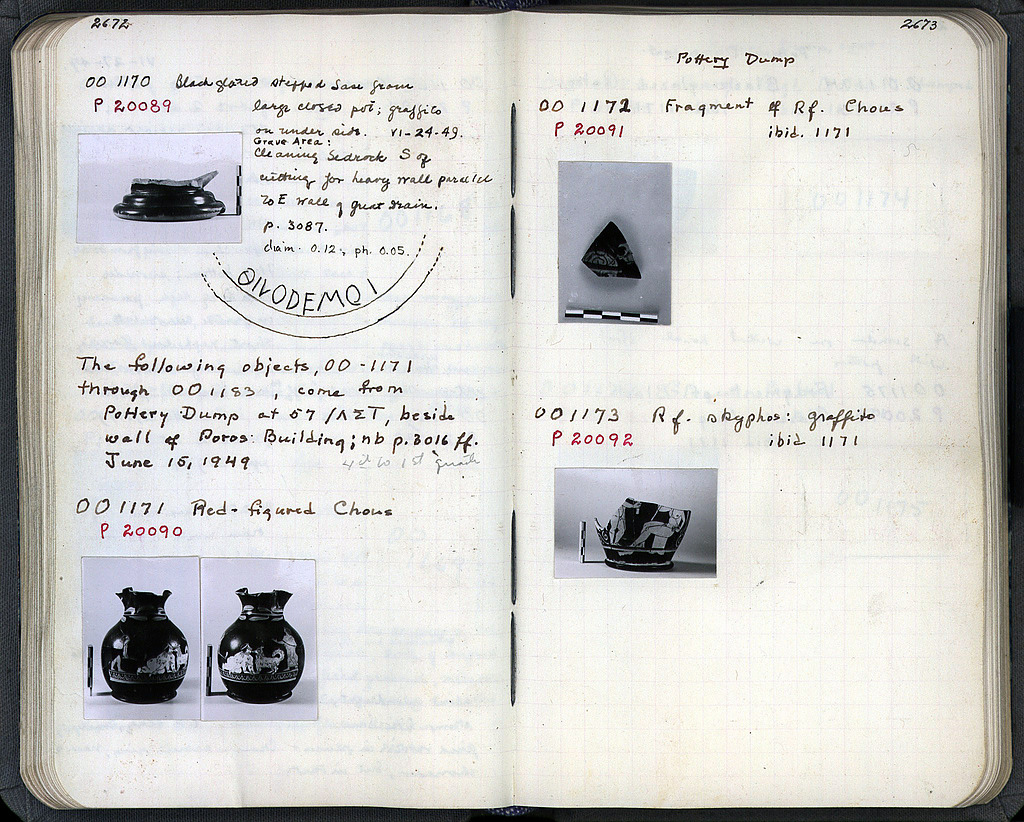 2672
OO 1170 Black glazed stepped base from
P 20089 large closed pot; graffito
on under side. VI-24-49.
Grave Area:
Cleaning bedrock S of
cutting for heavy wall parallel
to E wall of great drain.
p. 3087.
diam. 0.12, ph. 0.05.
ΦΙLODEMO I
The following objects, OO -1171
through OO 1183, come from
Pottery Dump at 57/ΛΣΤ, beside
wall of Poros Building; nb p. 3016 ff.
June 15, 1949 4th to 1st quart
OO 1171 Red-figured Chous
P 20090
2673
Pottery Dump
OO 1172 Fragment of Rf. Chous
P 20091 ibid. 1171
OO 1173 Rf. skyphos: graffito
P 20092 ibid 1171